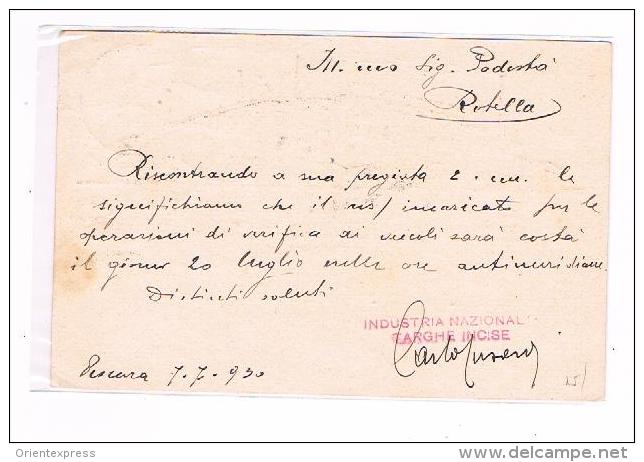 Ill.mo Sig. Podestà
Rotella
Riscontrando a sua pregiata 2. cm. le
significhiamo che il ns/ incaricato per le
operazioni di verifica ai veicoli sarà costà
il giorno 20 luglio nelle ore antimeridiane.
Distinti saluti
INDUSTRIA NAZIONAL
TARGHE INCISE
Carlo
Pescara 7.7.930
15/
Orientexpress
delcampe.net